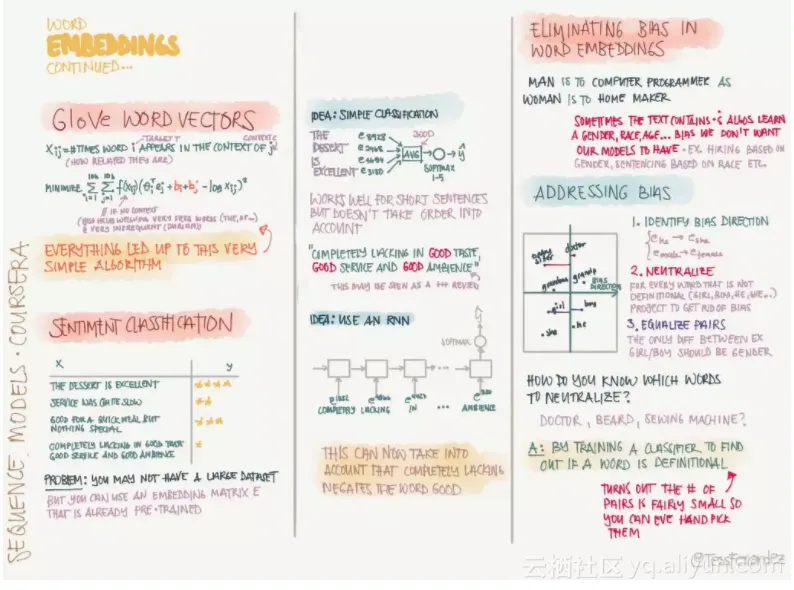 WORD
EMBEDDINGS
CONTINUED...
GloVe WORD VECTORS
TARGET
CONTEXT
Xij = #TIMES WORD i APPEARS IN THE CONTEXT OF j
(HOW RELATED THEY ARE)
MINIMIZE
// IF NO CONTEXT
& VERY INFREQUENT (DURIAN)
EVERYTHING LED UP TO THIS VERY
SIMPLE ALGORITHM
SENTIMENT CLASSIFICATION
X y
THE DESSERT IS EXCELLENT ★★★★
SERVICE WAS QUITE SLOW ★★
GOOD FOR A QUICK MEAL BUT ★★★
NOTHING SPECIAL
COMPLETELY LACKING IN GOOD TASTE ★
GOOD SERVICE AND GOOD AMBIENCE
PROBLEM: YOU MAY NOT HAVE A LARGE DATASET
BUT YOU CAN USE AN EMBEDDING MATRIX E
THAT IS ALREADY PRE-TRAINED
SEQUENCE MODELS · COURSERA
IDEA: SIMPLE CLASSIFICATION
THE
DESSERT
IS
EXCELLENT
AVG
ŷ
SOFTMAX
1-5
WORKS WELL FOR SHORT SENTENCES
BUT DOESN'T TAKE ORDER INTO
ACCOUNT
"COMPLETELY LACKING IN GOOD TASTE,
GOOD SERVICE AND GOOD AMBIENCE"
THIS MAY BE SEEN AS A +++ REVIEW
IDEA: USE AN RNN
ŷ
SOFTMAX
COMPLETELY LACKING IN ... AMBIENCE
THIS CAN NOW TAKE INTO
ACCOUNT THAT COMPLETELY LACKING
NEGATES THE WORD GOOD
ELIMINATING BIAS IN
WORD EMBEDDINGS
MAN IS TO COMPUTER PROGRAMMER AS
WOMAN IS TO HOME MAKER
SOMETIMES THE TEXT CONTAINS & ALGOS LEARN
A GENDER, RACE, AGE... BIAS WE DON'T WANT
OUR MODELS TO HAVE - EX. HIRING BASED ON
GENDER, SENTENCING BASED ON RACE ETC.
ADDRESSING BIAS
doctor
BIAS
DIRECTION
girl
boy
she
he
1. IDENTIFY BIAS DIRECTION
2. NEUTRALIZE
FOR EVERY WORD THAT IS NOT
DEFINITIONAL (GIRL, BOY, HE, SHE...)
PROJECT TO GET RID OF BIAS
3. EQUALIZE PAIRS
THE ONLY DIFF BETWEEN EX
GIRL/BOY SHOULD BE GENDER
HOW DO YOU KNOW WHICH WORDS
TO NEUTRALIZE?
DOCTOR, BEARD, SEWING MACHINE?
A: BY TRAINING A CLASSIFIER TO FIND
OUT IF A WORD IS DEFINITIONAL
TURNS OUT THE # OF
PAIRS IS FAIRLY SMALL SO
YOU CAN EVE HAND PICK
THEM
@TessFerrandez
云栖社区 yq.aliyun.com